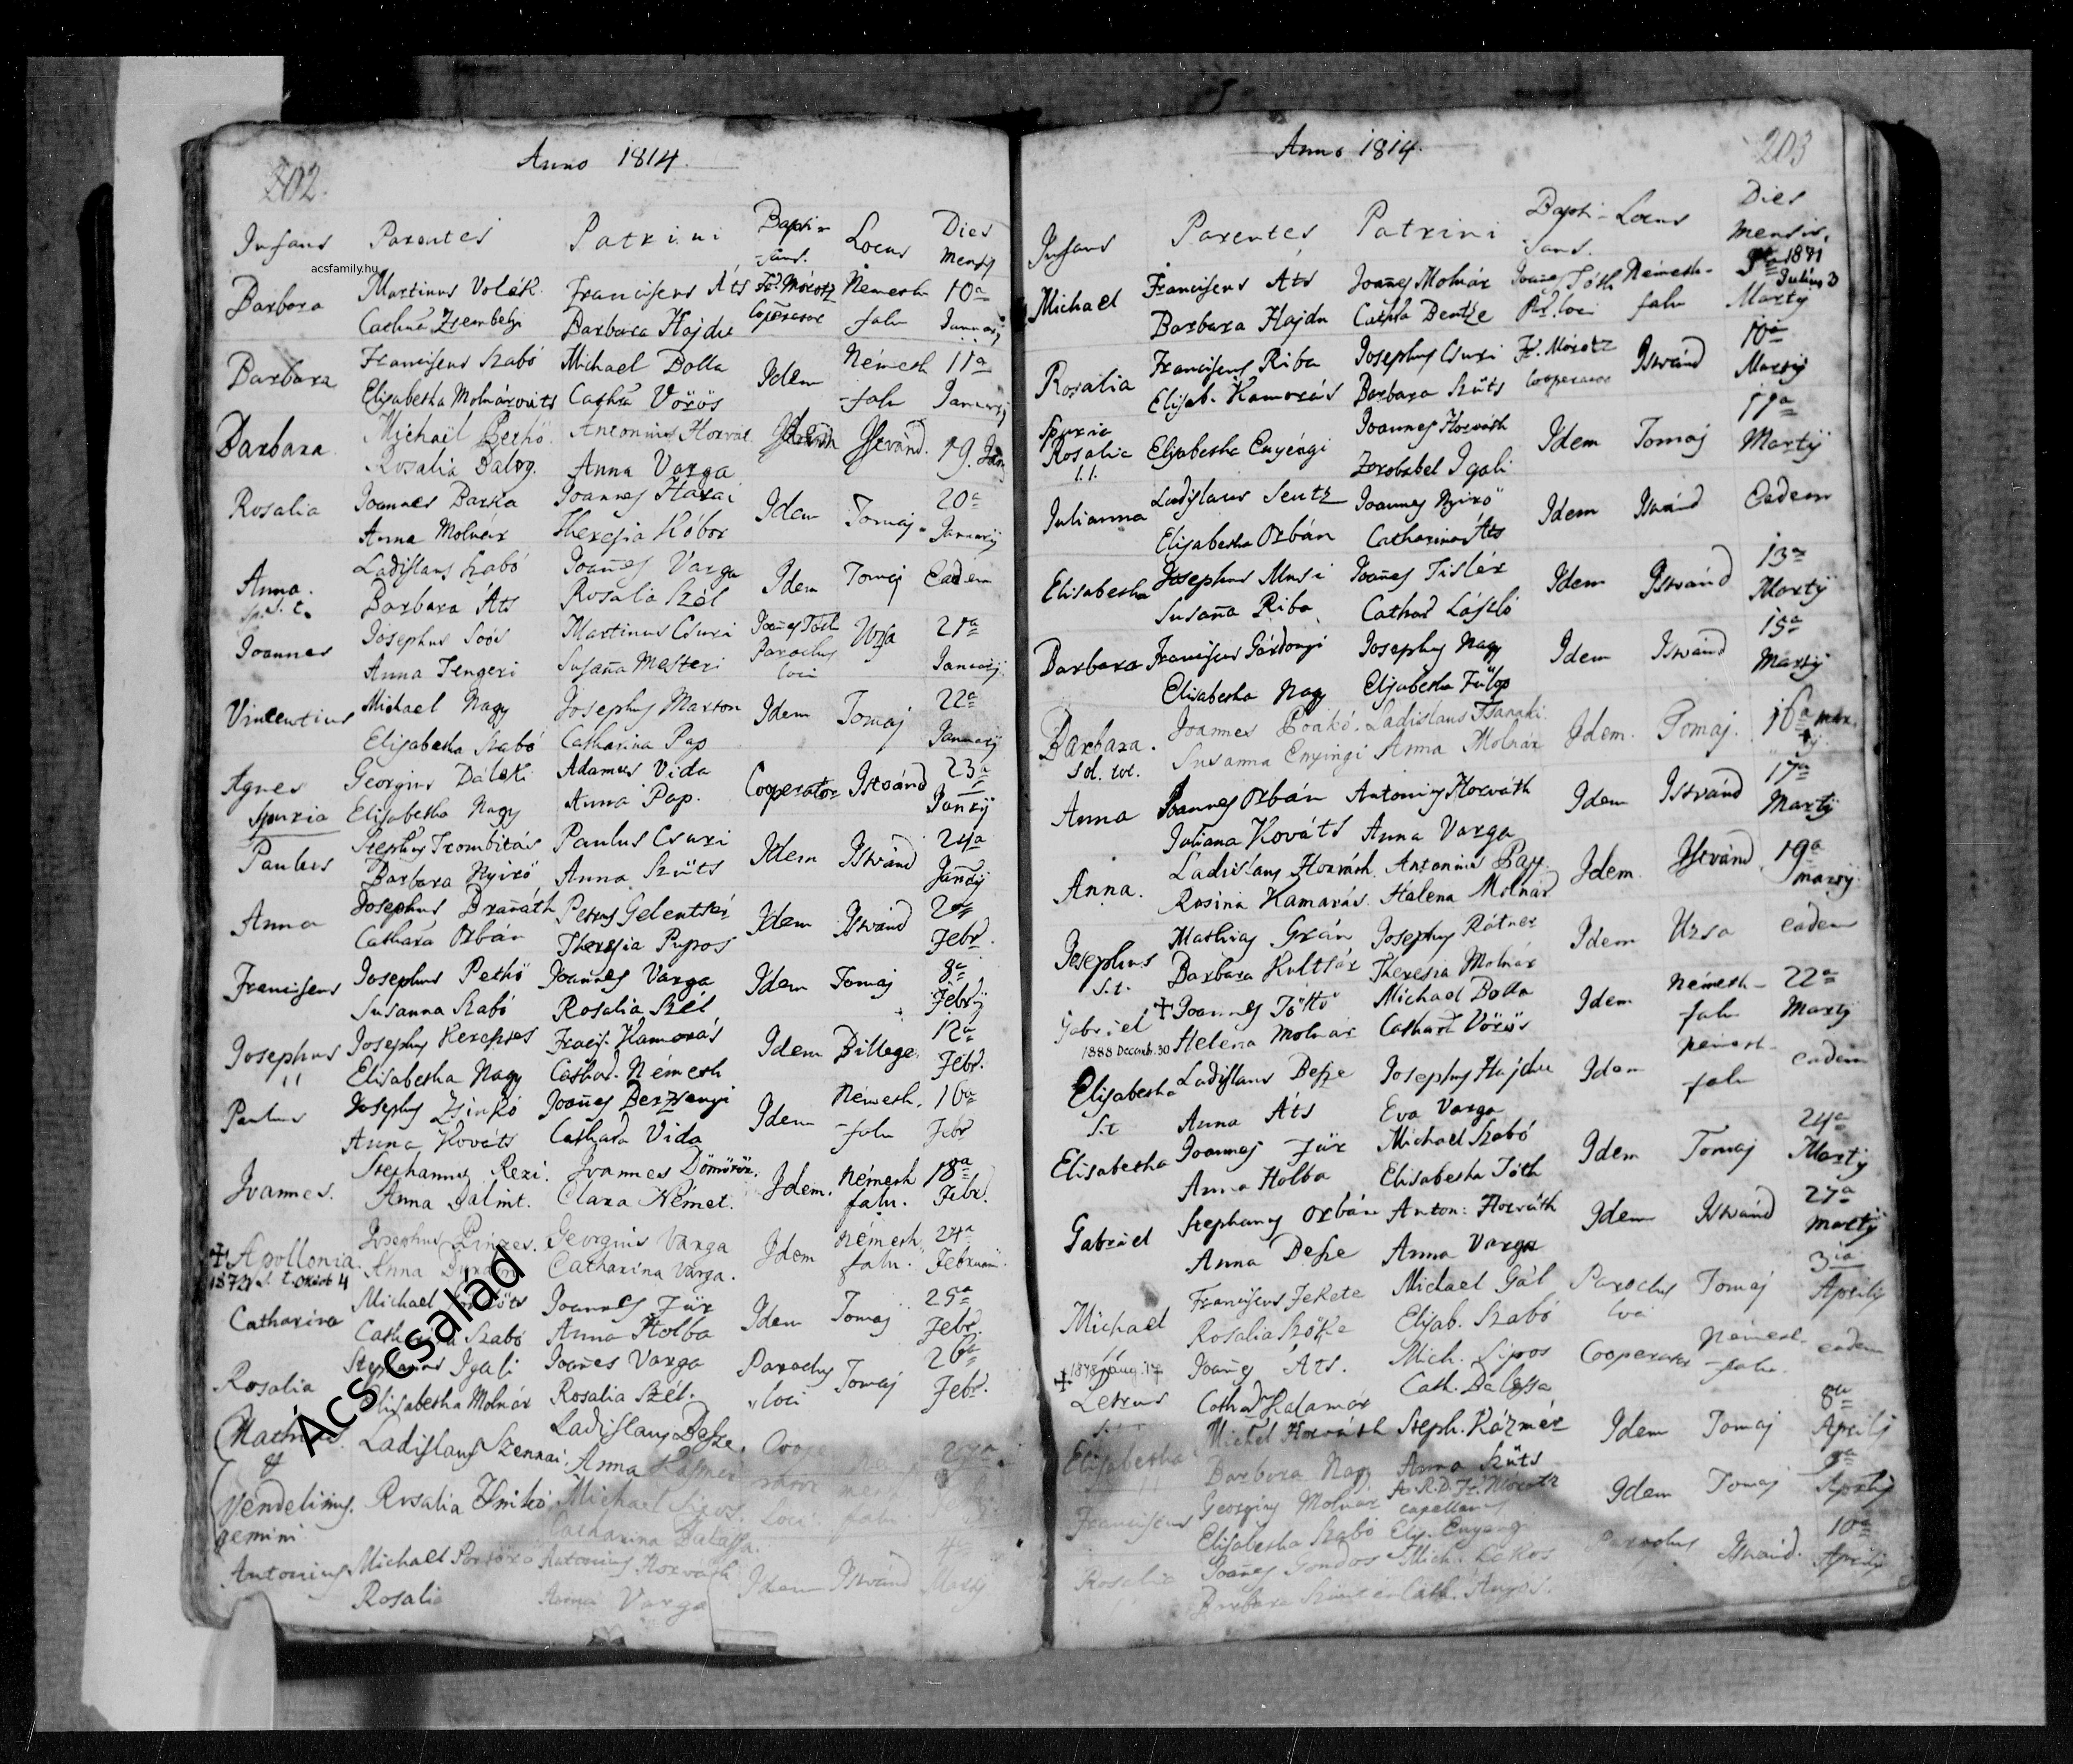 202.
Anno 1814.
Infans Parentes Patrini Bapti- Locus Dies
sans. Mensis
acsfamily.hu
Barbara Martinus Volák Franciscus Áts Fr. Mórotz Németh 10a
Catha Zsembelyi Barbara Hajdu Cooperator falu Januarij
Barbara Franciscus Szabó Michael Dolla Idem Németh 11a
Elisabetha Molnárváts Catha Vörös -falu Januarij
Barbara Michaël Pethö Antonius Horvát Istvánd. 19. Jan
Rosalia Balog. Anna Varga
Rosalia Joannes Barka Joannes Harai Idem Tomaj 20a
Anna Molnár Theresia Kóbor Januarij
Anna. Ladislaus Szabó Joañes Varga Idem Tomaj Eadem
s. t. Barbara Áts Rosalia Szél
Joannes Josephus Soós Martinus Csuri Joañes Tóth Uzsa 21a
Anna Tengeri Susaña Mesteri Parochus loci Januarij
Vincentius Michael Nagy Josephus Marton Idem Tomaj 22a
Elisabetha Szabó Catharina Pap Januarij
Agnes Georgius Adamus Vida Cooperator Istvánd 23a
Spuria Elisabetha Nagy Anna Pap. Janrij
Paulus Stephus Trombitás Paulus Csuri Idem Istvánd 24a
Barbara Nyirö Anna Szüts Janrij
Anna Josephus Petrus Gelentsér Idem Istvánd
Catha Orbán Theresia Pupos Febr.
Franciscus Josephus Pethö Joannes Varga Idem Tomaj 8a
Susanna Szabó Rosalia Szél Febrij
Josephus Josephus Kerekes Franc. Kamorás Idem Billege. 12a
Elisabetha Nagy Cathar. Németh Febr.
Paulus Josephus Zsinkó Joañes Berzsenyi Idem Németh. 16a
Anna Kováts Catha Vida -falu Febr
Joannes. Stephannus Rezi. Joannes Dömötör. Idem. Németh 18a
Anna Balint. Clara Német. falu. Febr.
Apollonia Josephus Georgius Varga Idem Németh 24a
1872 s. t. Oktob 4 Anna Catharina Varga. falu. Februarii
Catharina Michael Joannes Für Idem Tomaj 25a
Szabó Anna Holba Febr.
Rosalia Stephanus Igali Joañes Varga Parochus Tomaj 26a
Elisabetha Molnár Rosalia Szél. loci Febr.
Ács család
Mathias. Ladislaus Szennai. Ladislaus Besze.
& Anna
Vendelinus. Rosalia Michael Sipos. Loci. falu
gemini Catharina Balassa.
Antonius Michael Antonius Horváth Idem Istvánd Martij
Rosalia Anna Varga
Anno 1814. 203
Infans Parentes Patrini Bapti- Locus Dies
sans. Mensis.
Michael Franciscus Áts Joañes Molnár Joañes Tóth Németh- 1871
Julius 3
Barbara Hajdu Catha Bentze Par. loci falu Martij
Rosalia Franciscus Riba Josephus Csuri Fr. Mórotz Istvánd 10a
Elisab. Kamorás Barbara Szüts Cooperator Martij
Spuria Joannes Horváth 11a
Rosalia Elisabetha Enyéngi Idem Tomaj Martij
Zorobabel Igali
Julianna Ladislaus Sentz Joannes Nyirö Idem Istvánd Eadem
Elisabetha Orbán Catharina Áts
Elisabetha Josephus Musi Joañes Tislér Idem Istvánd 13a
Susaña Riba Cathar László Martij
Barbara Franciscus Gárdonyi Josephus Nagy Idem Istvánd 15a
Elisabetha Nagy Elisabetha Fülöp Martij
Barbara. Joannes Ladislaus Idem. Tomaj. 16a Mar.
Susanna Enyingi Anna Molnár
Anna Joannes Orbán Antonius Horváth Idem Istvánd 17a
Juliana Kováts Anna Varga Martij
Anna. Ladislaus Horváth. Antonius Papp. Idem. Istvánd. 19a
Rosina Kamarás. Helena Molnár Martij.
Josephus Mathias Grán Josephus Rátner Idem Uzsa eadem
S. t. Barbara Kultsár Theresia Molnár
Gabriel Joannes Tóttó Michael Dolla Idem Németh- 22a
1888 Decemb. 30 Helena Molnár Cathar Vörös falu Martij
Elisabetha Ladislaus Besze Josephus Hajdu Idem Németh- eadem
S. t. Anna Áts Eva Varga falu
Elisabetha Joannes Für Michael Szabó Idem Tomaj 24a
Anna Holba Elisabetha Tóth Martij
Gabriel Stephanus Orbán Anton: Horváth Idem Istvánd 27a
Anna Besze Anna Varga Martij
Michael Franciscus Fekete Michael Gál Parochus Tomaj 3ia
Rosalia Szöke Elisab. Szabó loci Aprilis
1878 aug. 17 Joañes Áts. Mich. Sipos Cooperator Németh- eadem
Petrus Cathar Kalamár Cath. Balassa -falu
Elisabetha Michel Horváth Steph. Kázmér Idem Tomaj 8a
Barbara Nagy Anna Szüts Aprilis
Franciscus Georgius Molnár A. R. D. Fr. Mórotz Idem Tomaj
capellanus Aprilis
Elisabetha Szabó Elis. Enyeng
Rosalia Joañes Gondos Mich. Lakos Parochus Istvánd. 10a
Barbara Cath. Aprilis